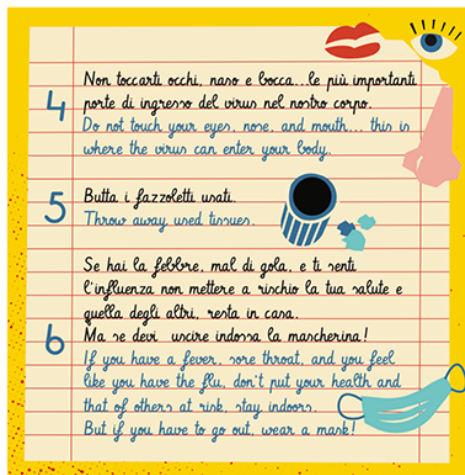 4
Non toccarti occhi, naso e bocca...le più importanti
porte di ingresso del virus nel nostro corpo.
Do not touch your eyes, nose, and mouth... this is
where the virus can enter your body.
5
Butta i fazzoletti usati.
Throw away used tissues.
6
Se hai la febbre, mal di gola, e ti senti
l'influenza non mettere a rischio la tua salute e
quella degli altri, resta in casa.
Ma se devi uscire indossa la mascherina!
If you have a fever, sore throat, and you feel
like you have the flu, don't put your health and
that of others at risk, stay indoors.
But if you have to go out, wear a mask!